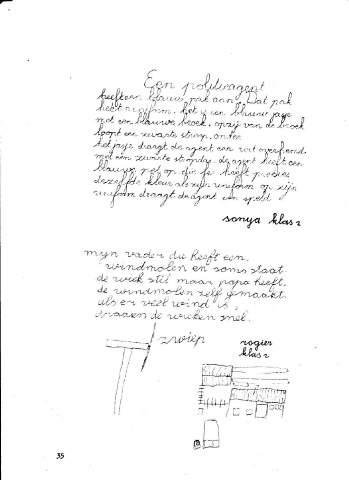 Een politieagent
heeft een blauw pak aan. Dat pak
heet uniform. het is een blauwe jasje
met een blauwe broek. opzij van de broek
loopt een zwarte streep. onder
het jasje draagt de agent een wit overhemd.
met een zwarte stropdas. de agent heeft een
blauwe pet op. die pet heeft precies
dezelfde kleur als zijn uniform op zijn
uniform draagt de agent een speld
sonya klas 2
mijn vader die heeft een
windmolen en soms staat
de wiek stil maar papa heeft
de windmolen zelf gemaakt.
als er veel wind is,
draaien de wieken snel.
zwiep
rogier
klas 2
35